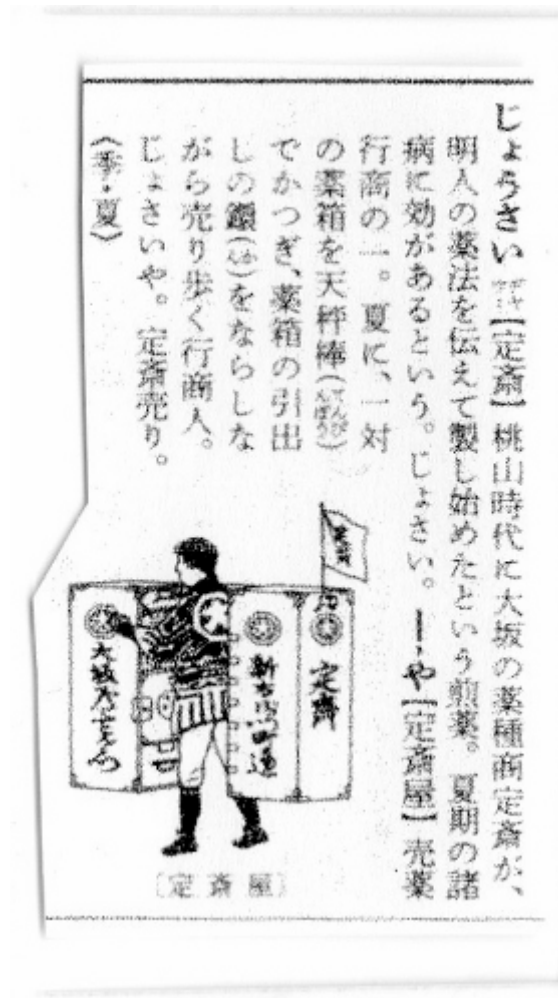 じょうさい【定斎】桃山時代に大坂の薬種商定斎が、
明人の薬法を伝えて製し始めたという煎薬。夏期の諸
病に効があるという。じょさい。―・や【定斎屋】売薬
行商の一。夏に、一対
の薬箱を天秤棒(てんびんぼう)
でかつぎ、薬箱の引出
しの鐶(かん)をならしな
がら売り歩く行商人。
じょさいや。定斎売り。
《季・夏》
定斎
定齋
〔定斎屋〕